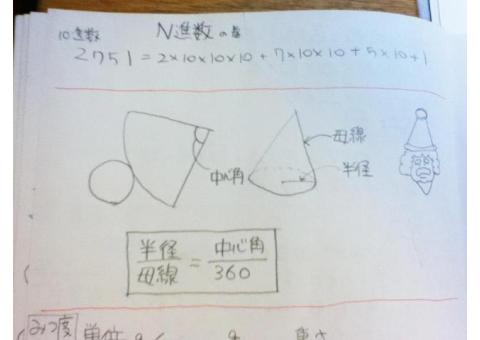 10進数 N進数の数
2751 = 2×10×10×10 + 7×10×10 + 5×10+1
中心角
母線
半径
半径/母線 = 中心角/360
みつ度 単位